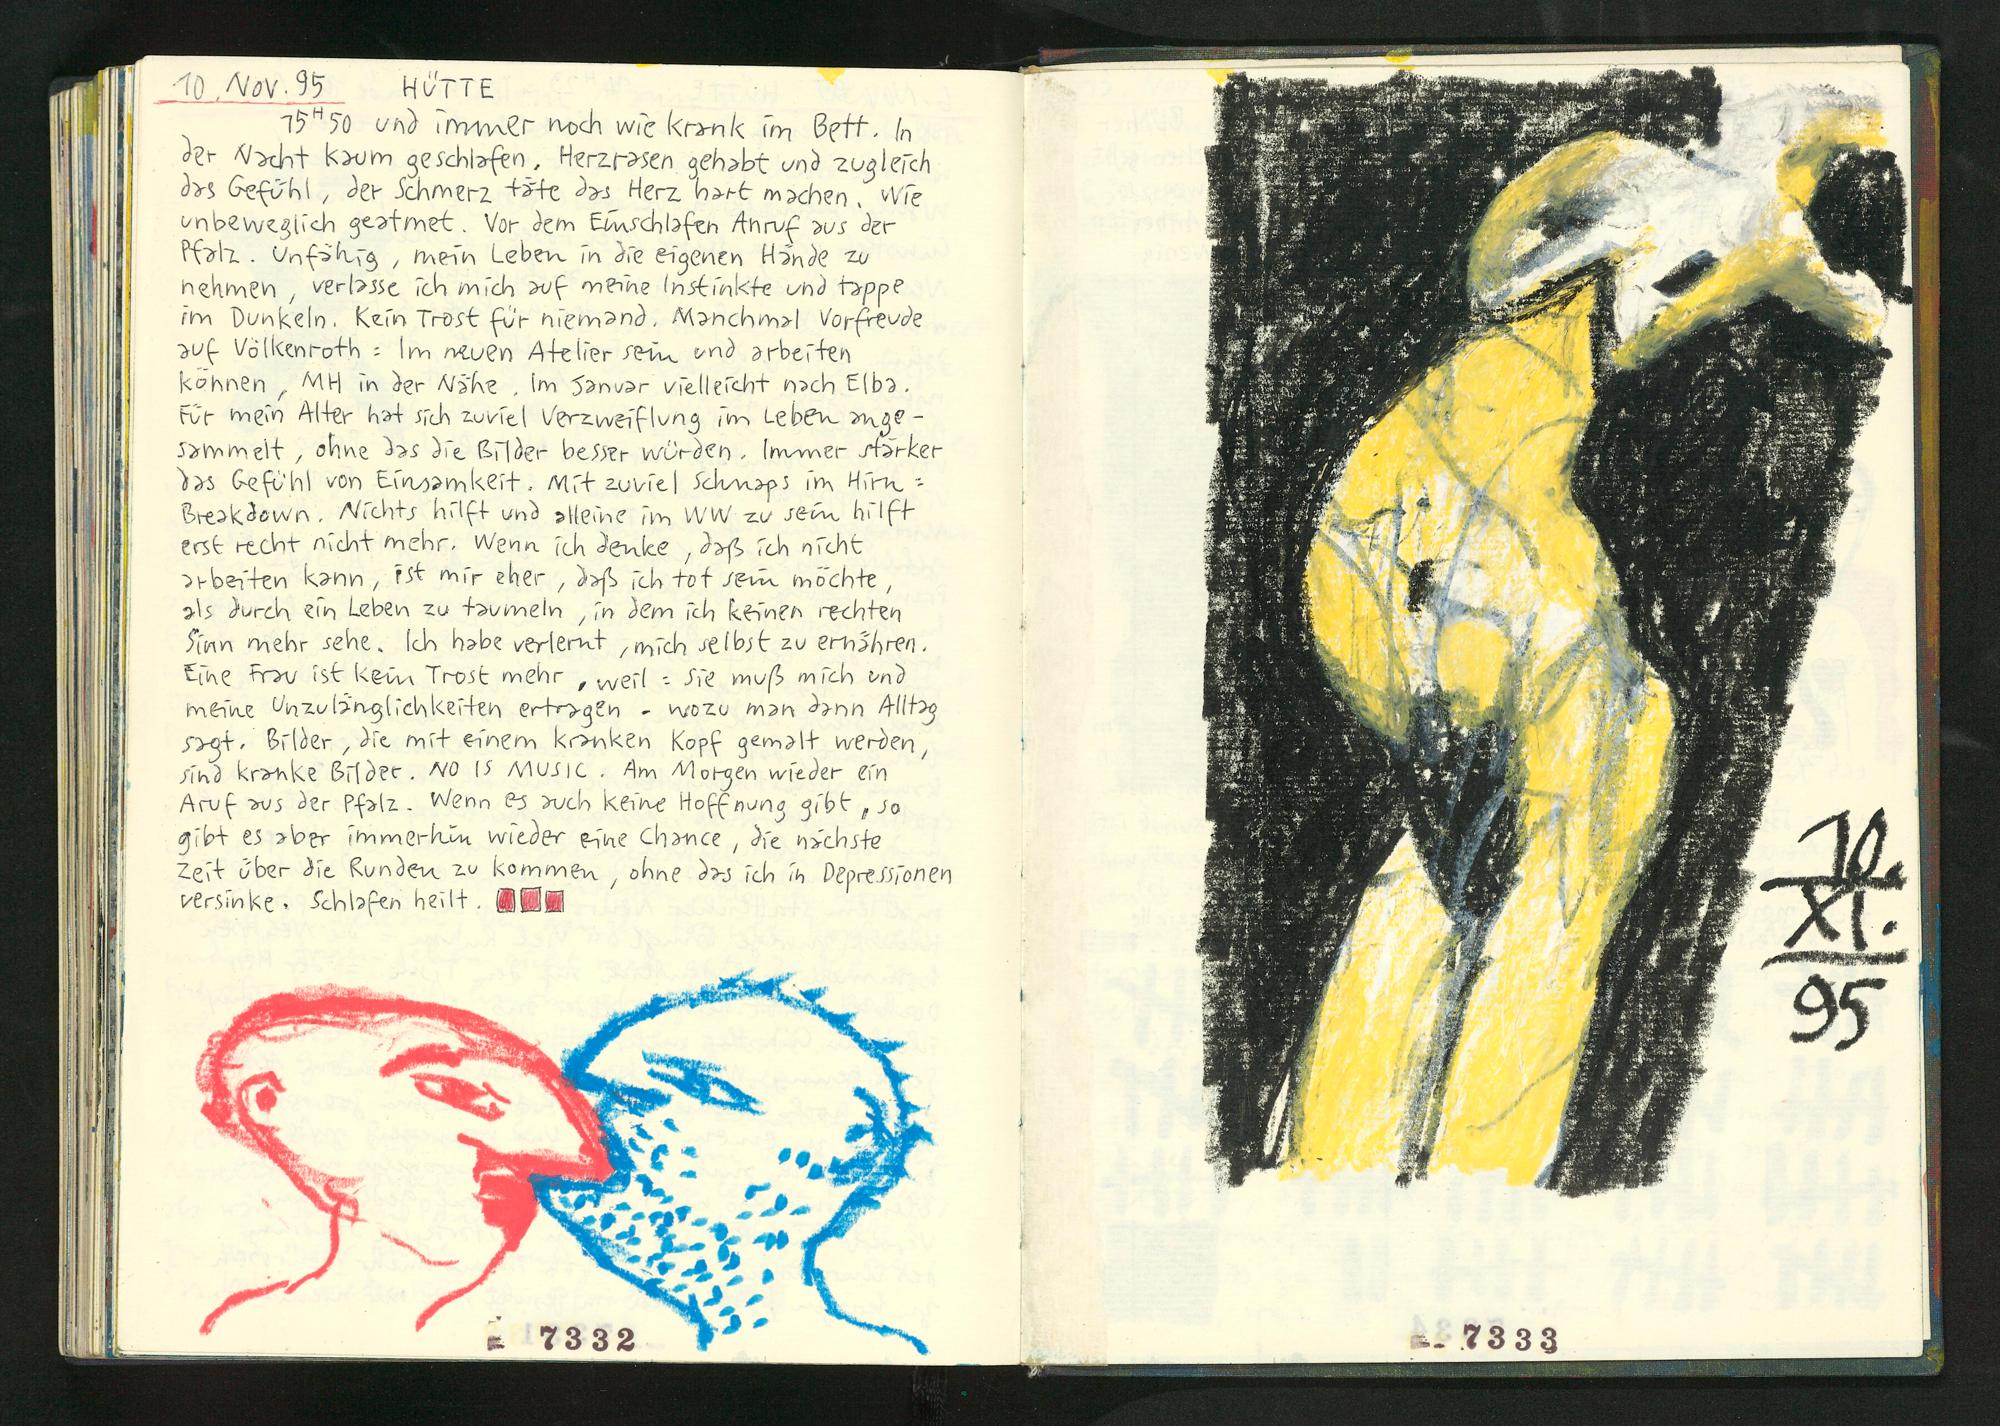 10. Nov. 95 HÜTTE
15H50 und immer noch wie krank im Bett. In
der Nacht kaum geschlafen. Herzrasen gehabt und zugleich
das Gefühl, der Schmerz täte das Herz hart machen. Wie
unbeweglich geatmet. Vor dem Einschlafen Anruf aus der
Pfalz. Unfähig, mein Leben in die eigenen Hände zu
nehmen, verlasse ich mich auf meine Instinkte und tappe
im Dunkeln. Kein Trost für niemand. Manchmal Vorfreude
auf Völkenroth: Im neuen Atelier sein und arbeiten
können, MH in der Nähe. Im Januar vielleicht nach Elba.
Für mein Alter hat sich zuviel Verzweiflung im Leben ange-
sammelt, ohne das die Bilder besser würden. Immer stärker
das Gefühl von Einsamkeit. Mit zuviel Schnaps im Hirn:
Breakdown. Nichts hilft und alleine im WW zu sein hilft
erst recht nicht mehr. Wenn ich denke, daß ich nicht
arbeiten kann, ist mir eher, daß ich tot sein möchte,
als durch ein Leben zu taumeln, in dem ich keinen rechten
Sinn mehr sehe. Ich habe verlernt, mich selbst zu ernähren.
Eine Frau ist kein Trost mehr, weil: sie muß mich und
meine Unzulänglichkeiten ertragen - wozu man dann Alltag
sagt. Bilder, die mit einem kranken Kopf gemalt werden,
sind kranke Bilder. NO IS MUSIC. Am Morgen wieder ein
Aruf aus der Pfalz. Wenn es auch keine Hoffnung gibt, so
gibt es aber immerhin wieder eine Chance, die nächste
Zeit über die Runden zu kommen, ohne das ich in Depressionen
versinke. Schlafen heilt.
7332
10.
XI.
95
7333